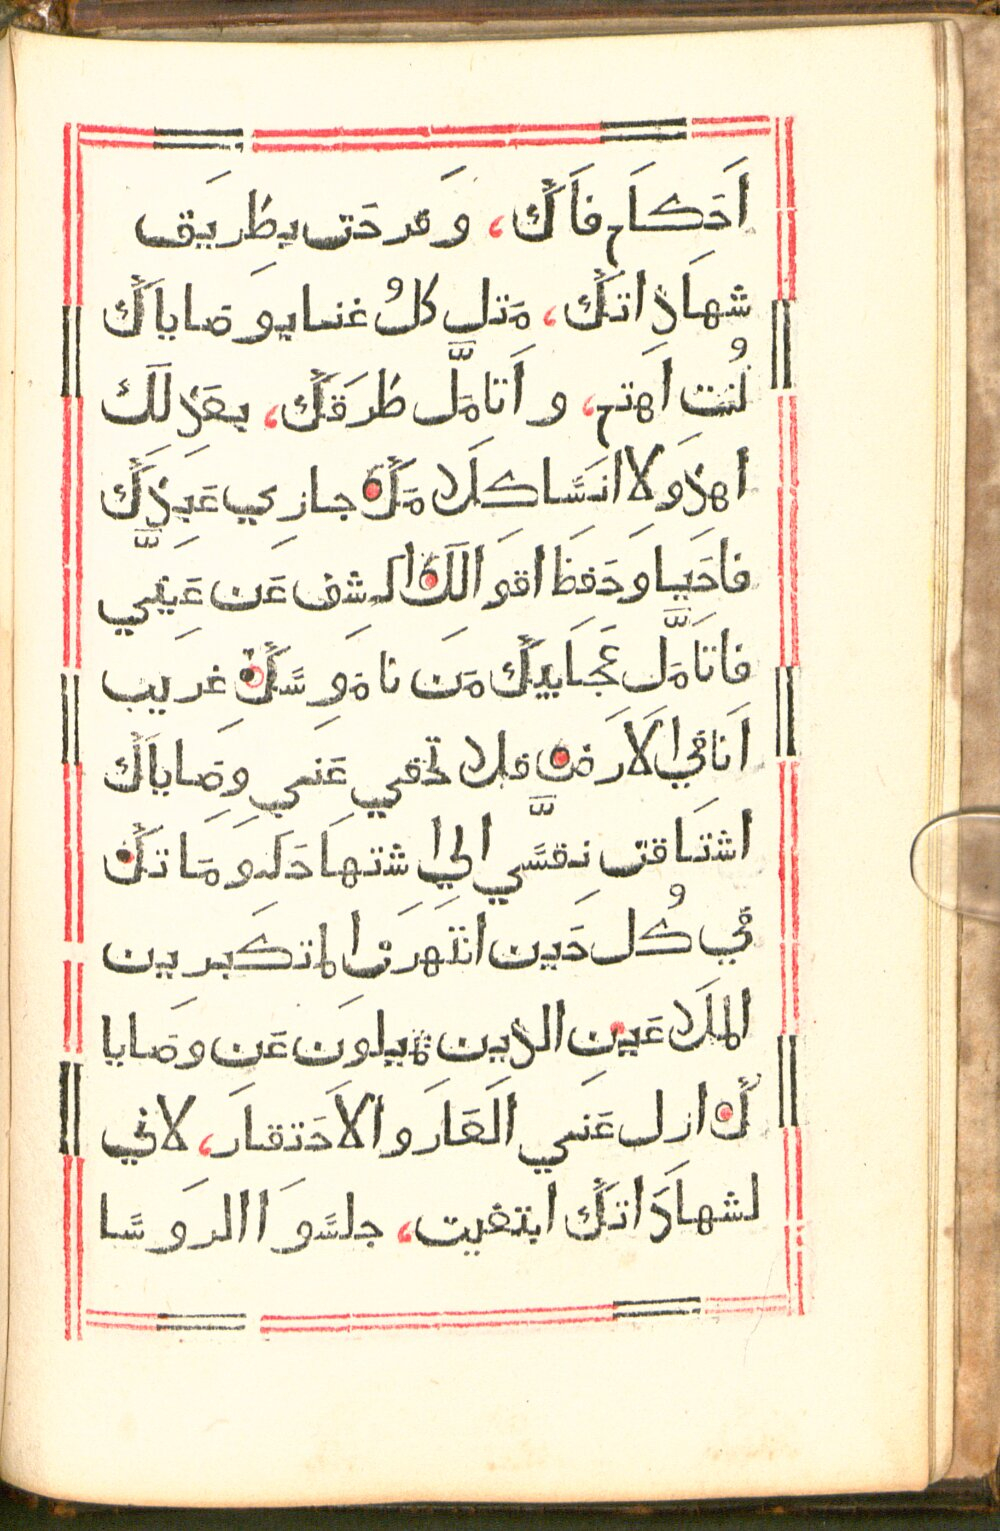 اَحَكاَم فاَكَ، وَ فرحَتى بطِرَيق
شهاَذاتكَ، مَتل كلُ غنا يوَصَاياكَ
كُنت اَهتم، و اَتامَلَّ طرَقكَ، بعَذلكَ
اهذوَ لا انسَا كلَامَكَ جازِي عَبذَكَ
فاحَيا وَحَفظ اقوَالكَ اكشف عَن عَينيَّ
فاتامَلَّ عَجَايبكَ مَن نامَوسَكَ غريب
اَنافي الاَرَض فلا تخفي عَني وَصَاياكَ
اشتَاقت نفسَّي الي اشتهاَ حَكومَاتكَ
في كُل حَين انتَهرَت المتكبرين
الملَاعَين الذين يميلوَن عَن وصَايا
كَ ازل عَني العَارَ والاَحَتقارَ، لاني
لشهاَذَاتكَ ابتغيت، جلسَوَ االروَسَا